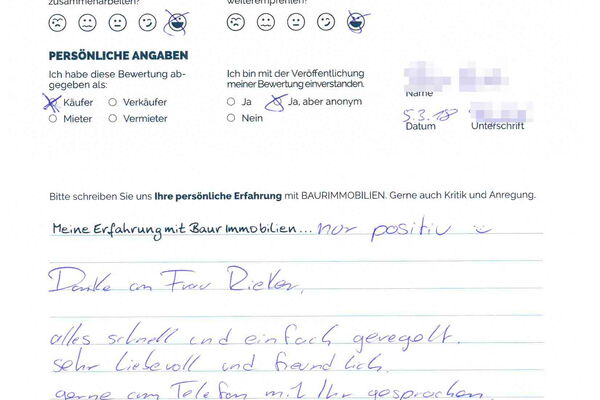 zusammenarbeiten?
weiterempfehlen?
PERSÖNLICHE ANGABEN
Ich habe diese Bewertung ab-
gegeben als:
Käufer Verkäufer
Mieter Vermieter
Ich bin mit der Veröffentlichung
meiner Bewertung einverstanden.
Ja Ja, aber anonym
Nein
Name
5.3.18
Datum Unterschrift
Bitte schreiben Sie uns Ihre persönliche Erfahrung mit BAURIMMOBILIEN. Gerne auch Kritik und Anregung.
Meine Erfahrung mit Baur Immobilien... nur positiv
Danke an Frau Rieker,
alles schnell und einfach geregelt.
sehr liebevoll und freundlich.
gerne am Telefon mit Ihr gesprochen.